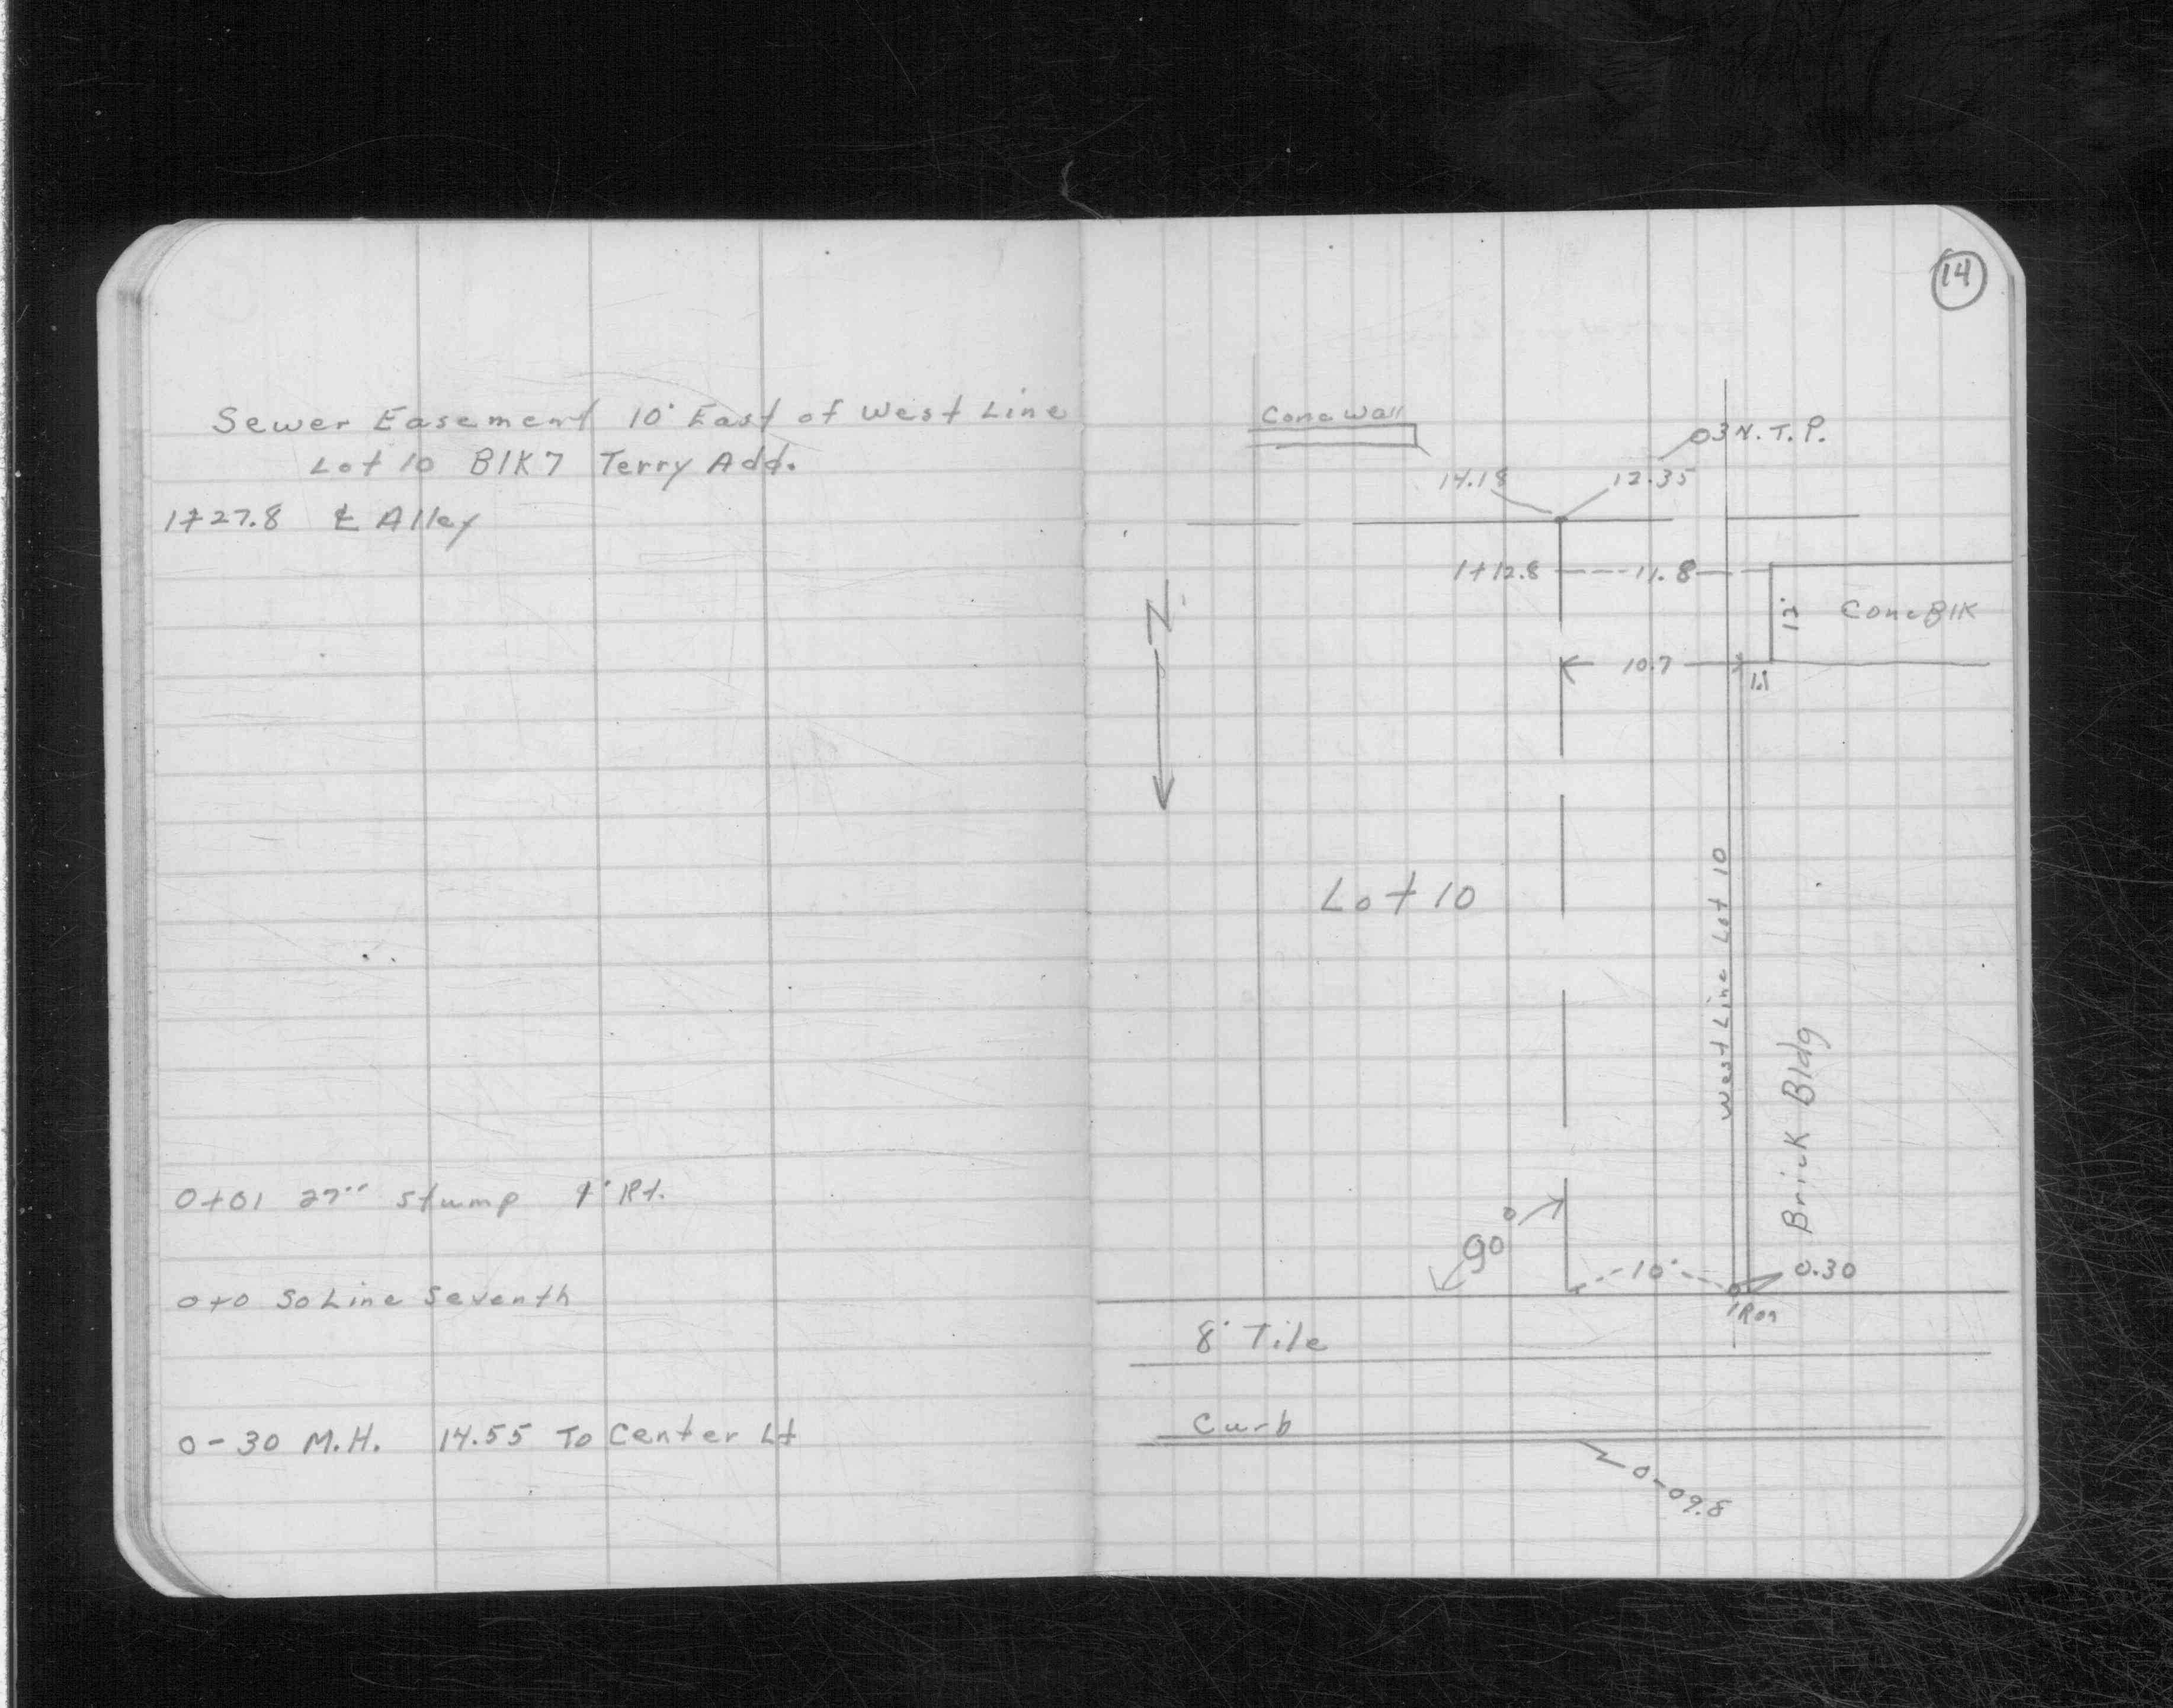 Sewer Easement 10' East of West Line
Lot 10 Blk 7 Terry Add.
1+27.8 ℄ Alley
0+01 27" stump 1' Rt.
0+0 So Line Seventh
0-30 M.H. 14.55 To Center Lt
14
Conc Wall
N.T.P.
14.18 12.35
1+12.8 11.8
12' Conc Blk
N
10.7
1.1
Lot 10
West Line Lot 10
Brick Bldg
90°
10' 0.30
Iron
8' Tile
Curb
0-09.8